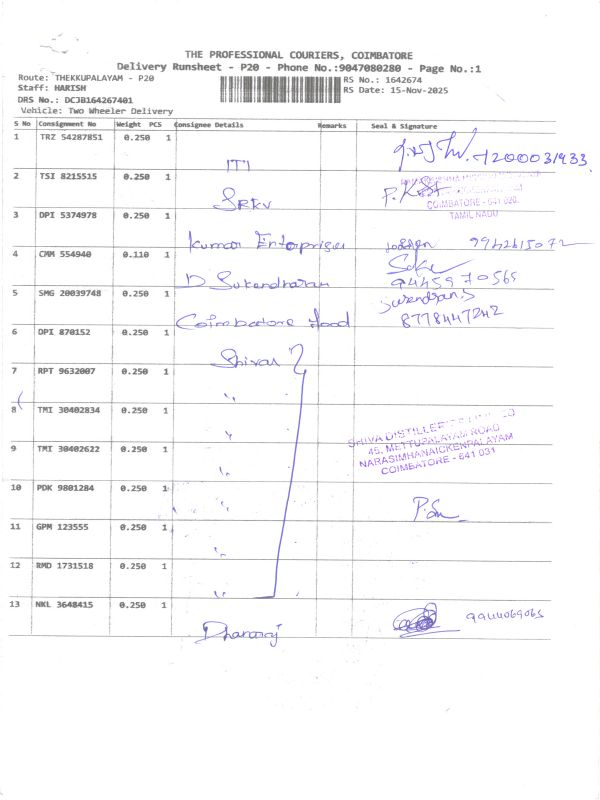 THE PROFESSIONAL COURIERS, COIMBATORE
Delivery Runsheet - P20 - Phone No.:9047080280 - Page No.:1
Route: THEKKUPALAYAM - P20
RS No.: 1642674
Staff: HARISH
RS Date: 15-Nov-2025
DRS No.: DCJB164267401
Vehicle: Two Wheeler Delivery
S No Consignment No Weight PCS Consignee Details Remarks Seal & Signature
1 TRZ 54287851 0.250 1
ITI
2 TSI 8215515 0.250 1
SRKV
COIMBATORE - 641 020.
TAMIL NADU
3 DPI 5374978 0.250 1
Kumar Enterprises 9942615072
4 CMM 554940 0.110 1
D Surendharan 9445970565
5 SMG 20039748 0.250 1
Coimbatore Hood Surendran.S
8778447242
6 DPI 870152 0.250 1
Shivas
7 RPT 9632007 0.250 1
"
8 TMI 30402834 0.250 1
"
SHIVA DISTILLERIES LIMITED
45, METTUPALAYAM ROAD
NARASIMHANAICKENPALAYAM
COIMBATORE - 641 031
9 TMI 30402622 0.250 1
"
10 PDK 9801284 0.250 1
"
11 GPM 123555 0.250 1
"
12 RMD 1731518 0.250 1
"
13 NKL 3648415 0.250 1
Dhanaraj 9944069065